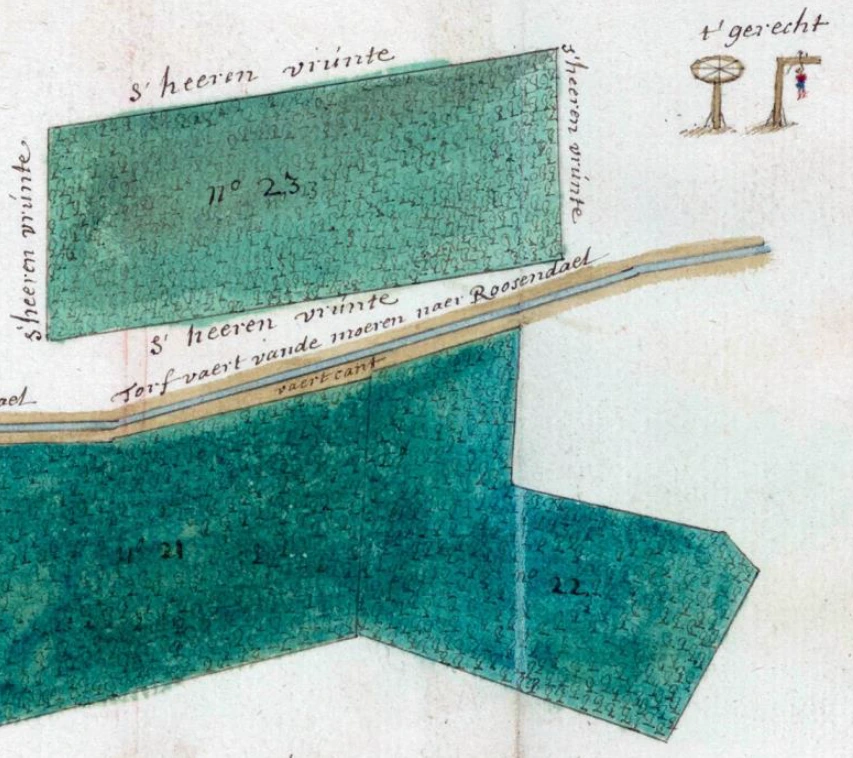 t' gerecht
s' heeren vrúnte
s' heeren vrúnte
s' heeren vrúnte
n° 23
s' heeren vrúnte
Torf vaert vande moeren naer Roosendael
vaert cant
ael
n° 21
n° 22